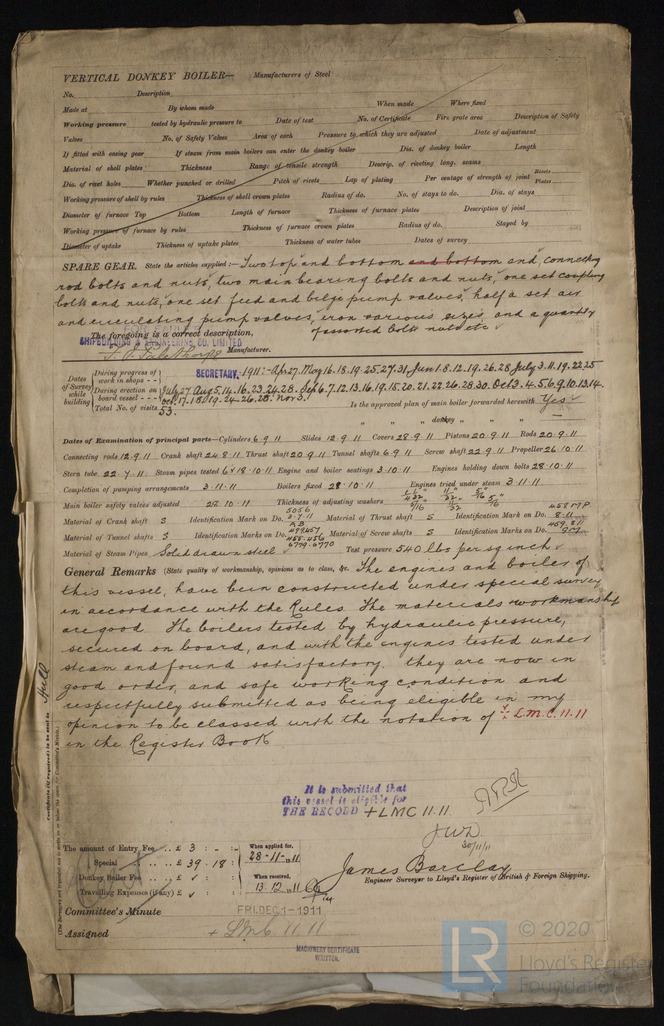 VERTICAL DONKEY BOILER— Manufacturers of Steel
No. Description
Made at By whom made When made Where fixed
Working pressure tested by hydraulic pressure to Date of test No. of Certificate Fire grate area Description of Safety
Valves No. of Safety Valves Area of each Pressure to which they are adjusted Date of adjustment
If fitted with easing gear If steam from main boilers can enter the donkey boiler Dia. of donkey boiler Length
Material of shell plates Thickness Range of tensile strength Descrip. of riveting long. seams
Dia. of rivet holes Whether punched or drilled Pitch of rivets Lap of plating Per centage of strength of joint Rivets Plates
Working pressure of shell by rules Thickness of shell crown plates Radius of do. No. of stays to do. Dia. of stays
Diameter of furnace Top Bottom Length of furnace Thickness of furnace plates Description of joint
Working pressure of furnace by rules Thickness of furnace crown plates Radius of do. Stayed by
Diameter of uptake Thickness of uptake plates Thickness of water tubes Dates of survey
SPARE GEAR. State the articles supplied:— Two top and bottom and bottom end, connecting
rod bolts and nuts, two main bearing bolts and nuts, one set coupling
bolts and nuts, one set feed and bilge pump valves, half a set air
and circulating pump valves, iron various sizes, and a quantity
of assorted bolts nuts etc
The foregoing is a correct description,
SHIPBUILDING & ENGINEERING CO. LIMITED
Manufacturer.
SECRETARY.
Dates of Survey while building
During progress of work in shops - - 1911:- Apr 27. May 16. 18. 19. 25. 27. 31 Jun 1. 8. 12. 19. 26. 28 July 3. 11. 19. 22. 25
During erection on board vessel - - - July 27 Aug 5. 14. 16. 23. 24. 28. Sep 6. 7. 12. 13. 16. 19. 15. 20. 21. 22. 26. 28. 30. Oct 3. 4. 5. 6. 9. 10. 13. 14.
Oct. 17. 18. 19. 24. 26. 28. Nov 3.
Total No. of visits 53. Is the approved plan of main boiler forwarded herewith Yes
" " " donkey " " " —
Dates of Examination of principal parts—Cylinders 6.9.11 Slides 12.9.11 Covers 28.9.11 Pistons 20.9.11 Rods 20.9.11
Connecting rods 12.9.11 Crank shaft 24.8.11 Thrust shaft 20.9.11 Tunnel shafts 6.9.11 Screw shaft 22.9.11 Propeller 26.10.11
Stern tube 22.7.11 Steam pipes tested 6 & 18.10.11 Engine and boiler seatings 3.10.11 Engines holding down bolts 28.10.11
Completion of pumping arrangements 3.11.11 Boilers fixed 28.10.11 Engines tried under steam 3.11.11
Main boiler safety valves adjusted 28.10.11 Thickness of adjusting washers
Material of Crank shaft S Identification Mark on Do. 5056 3.7.11 Material of Thrust shaft S Identification Mark on Do.
Material of Tunnel shafts S Identification Marks on Do. Material of Screw shafts S Identification Marks on Do.
Material of Steam Pipes Solid drawn steel Test pressure 540 lbs per sq inch
General Remarks (State quality of workmanship, opinions as to class, &c. The engines and boiler of
this vessel, have been constructed under special survey
in accordance with the Rules. The materials & workmanship
are good. The boilers tested by hydraulic pressure,
secured on board, and with the engines tested under
steam and found satisfactory. they are now in
good order, and safe working condition and
respectfully submitted as being eligible in my
opinion to be classed with the notation of + L.M.C. 11.11
in the Register Book
It is submitted that
this vessel is eligible for
THE RECORD + LMC 11.11.
J.W.D.
30/11/11
The amount of Entry Fee .. £ 3 : - : - When applied for,
Special .. .. £ 39 . 18 : 28.11.1911
Donkey Boiler Fee .. .. £ : : When received,
Travelling Expenses (if any) £ : : 13.12.1911
James Barclay
Engineer Surveyor to Lloyd's Register of British & Foreign Shipping.
Committee's Minute FRI. DEC 1 - 1911
Assigned + LMC 11.11
MACHINERY CERTIFICATE
WRITTEN.
Certificate (if required) to be sent to Hull
(The Surveyors are requested not to write on or below the space for Committee's Minute.)
LR
© 2020
Lloyd's Register
Foundation